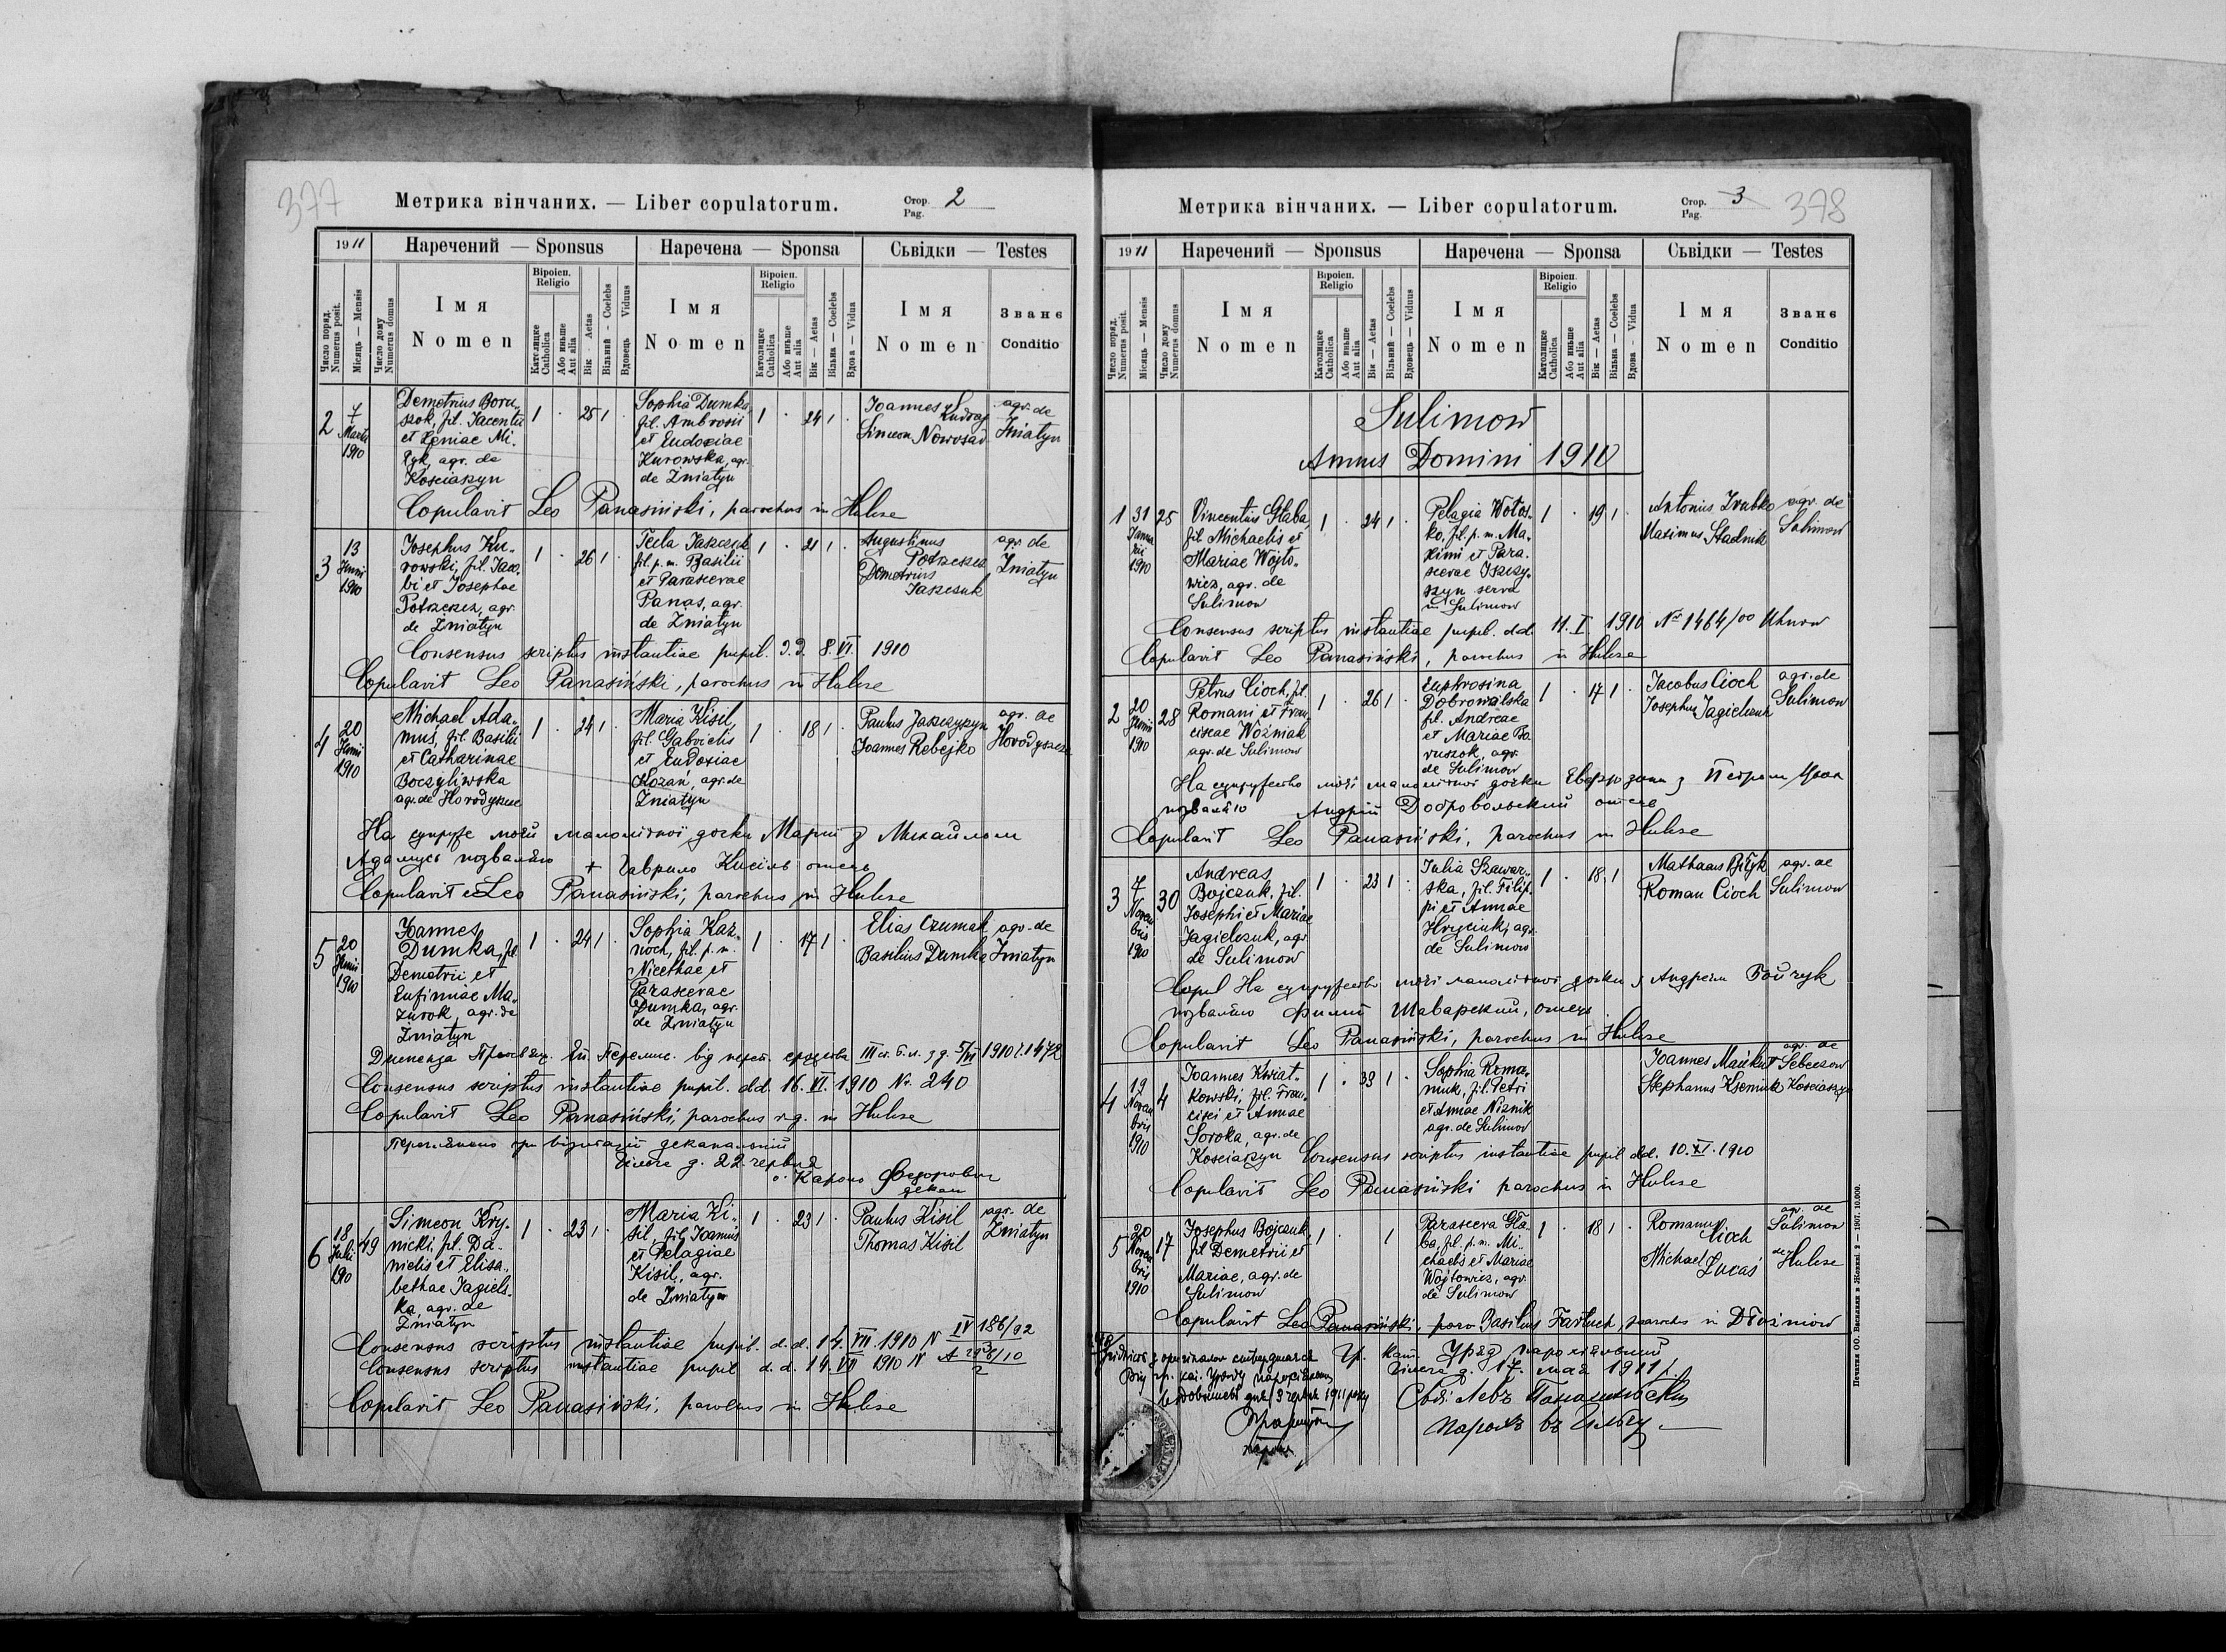 377
Метрика вінчаних. — Liber copulatorum.
Стор. Pag. 2
1911
Наречений — Sponsus
Наречена — Sponsa
Сьвідки — Testes
Число поряд. Numerus posit.
Місяць — Mensis
Число дому Numerus domus
Імя Nomen
Віроісп. Religio
Католицке Catholica
Або иньше Aut alia
Вік — Aetas
Вільний - Coelebs
Вдовець — Viduus
Імя Nomen
Віроісп. Religio
Католицке Catholica
Або иньше Aut alia
Вік — Aetas
Вільна — Coelebs
Вдова — Vidua
Імя Nomen
Званє Conditio
2
7 Martii 1910
Demetrius Boru-
szok, fil. Jacentii
et Xeniae Mi-
agr. de
Kosciaszyn
1 . 25 1 .
Sophia Dumka,
fil. Ambrosii
et Eudoxiae
Kurowska, agr.
de Zniatyn
1 . 24 1 .
Joannes
Simeon Nowosad
agr. de
Zniatyn
Copulavit Leo Panasiński, parochus in Hulcze
3
13 Junii 1910
Josephus Ku-
rowski, fil. Jaco-
bi et Josephae
Potrzeszcz, agr.
de Zniatyn
1 . 26 1 .
Tecla Jaszczuk
fil. p. m. Basilii
et Parascevae
Panas, agr.
de Zniatyn
1 . 21 1 .
Augustinus
Demetrius
Jaszczuk
agr. de
Zniatyn
Consensus scriptus instantiae pupil. d.d. 8. VI. 1910
Copulavit Leo Panasiński, parochus in Hulcze
4
20 Junii 1910
Michael Ada-
muś, fil. Basilii
et Catharinae
Boczyliwska
agr. de
1 . 24 1 .
Maria Kisil,
fil. Gabrielis
et Eudoxiae
Kozań, agr. de
Zniatyn
1 . 18 1 .
Paulus Jaszczyszyn
Joannes Rebejko
agr. de
На супруже моєй малолітної дочки Марії з Михайлом
Адамусь позваляю + Гаврило Кисіль отець
Copulavit Leo Panasiński, parochus in Hulcze
5
20 Junii 1910
Joannes
Dumka, fil.
Demetrii et
Eufimiae Ma-
zurok, agr. de
Zniatyn
1 . 24 1 .
Sophia Kaz-
noch, fil. p. m.
Nicethae et
Parascevae
Dumka, agr.
de Zniatyn
1 . 17 1 .
Elias Czumak
Basilius Dumka
agr. de
Zniatyn
Диспенза Еп. Перемис. від 1910
Consensus scriptus instantiae pupil. d.d. 16. VI. 1910 Nr. 240
Copulavit Leo Panasiński, parochus in Hulcze
Переглянено при візитації деканальній
д. 22 червня
о. Федорович
декан
6
18 Julii 1910
49
Simeon Kry-
nicki, fil. Da-
nielis et Elisa-
bethae Jagiels-
ka, agr. de
Zniatyn
1 . 23 1 .
Maria Ki-
sil, fil. Joannis
et Pelagiae
Kisil, agr.
de Zniatyn
1 . 23 1 .
Paulus Kisil
Thomas Kisil
agr. de
Zniatyn
Consensus scriptus instantiae pupil. d.d. 14. VII. 1910 N IV 186/92
Consensus scriptus instantiae pupil d.d. 14. VII 1910 N
Copulavit Leo Panasiński, parochus in Hulcze
Метрика вінчаних. — Liber copulatorum.
Стор. Pag. 3
378
1911
Наречений — Sponsus
Наречена — Sponsa
Сьвідки — Testes
Число поряд. Numerus posit.
Місяць — Mensis
Число дому Numerus domus
Імя Nomen
Віроісп. Religio
Католицке Catholica
Або иньше Aut alia
Вік — Aetas
Вільний — Coelebs
Вдовець — Viduus
Імя Nomen
Віроісп. Religio
Католицке Catholica
Або иньше Aut alia
Вік — Aetas
Вільна — Coelebs
Вдова - Vidua
Імя Nomen
Званє Conditio
Sulimow
Annus Domini 1910
1
31 Januarii 1910
25
Vincentius Głaba,
fil Michaelis et
Mariae Wojto-
wicz, agr. de
Sulimow
1 . 24 1 .
Pelagia Wołos-
ko, fil. p. m. Ma-
ximi et Para-
scevae
serva
in Sulimow
1 . 19 1 .
Antonius
Maximus Stadnik
agr. de
Sulimow
Consensus scriptus instantiae pupil. d.d. 11. I. 1910 Nr 1464/00 Uhnow
Copulavit Leo Panasiński, parochus in Hulcze
2
20 Junii 1910
28
Petrus Cioch, fil.
Romani et Fran-
ciscae Woźniak
agr. de Sulimow
1 . 26 1 .
Euphrosina
Dobrowolska
fil. Andreae
et Mariae Bo-
ruszok, agr.
de Sulimow
1 . 17 1 .
Jacobus Cioch
Josephus Jagielczuk
agr. de
Sulimow
На супружество моєї малолітної дочки Евфрозини з Петром Цьох
позваляю Андрій Добровольский отець
Copulavit Leo Panasiński, parochus in Hulcze
3
7 Novembris 1910
30
Andreas
Bojczuk, fil.
Josephi et Mariae
Jagielczuk, agr.
de Sulimow
1 . 23 1 .
Julia Szawar-
ska, fil. Filip-
pi et Annae
Hryciuk, agr.
de Sulimow
1 . 18 1 .
Mathaeus
Roman Cioch
agr. de
Sulimow
Copul На супружество моєї малолітної дочки з Андреем Бойчук
позваляю Филип Шаварский, отець
Copulavit Leo Panasiński, parochus in Hulcze
4
19 Novembris 1910
4
Joannes Kwiat-
kowski, fil. Fran-
cisci et Annae
Soroka, agr. de
Kosciaszyn
1 . 39 1 .
Sophia
fil. Petri
et Annae Niznik
agr. de Sulimow
Joannes
Stephanus Kseniuk
agr. de
Kosciaszyn
Consensus scriptus instantiae pupil d.d. 10. XI. 1910
Copulavit Leo Panasiński parochus in Hulcze
5
20 Novembris 1910
17
Josephus Bojczuk,
fil Demetrii et
Mariae, agr. de
Sulimow
1 . 1
Parasceva Gła-
ba, fil. p. m. Mi-
chaelis et Mariae
Wojtowicz, agr.
de Sulimow
1 . 18 1 .
Romanus
Cioch
Michael
Łucaś
agr. de
Sulimow
de Hulcze
Copulavit Leo Panasiński, paro Basilius Fartuch, parochus in Dłużniow
з оригіналом
гр. кат. Уряду парохіяльного
дня 13 червня 1911 року
парох
Гр. кат. Уряд парохіяльний
д. 17. мая 1911
Левъ Панасіньский
парохъ въ
Печатня ОО. Василиян в Жовкві. 2 — 1907. 10.000.